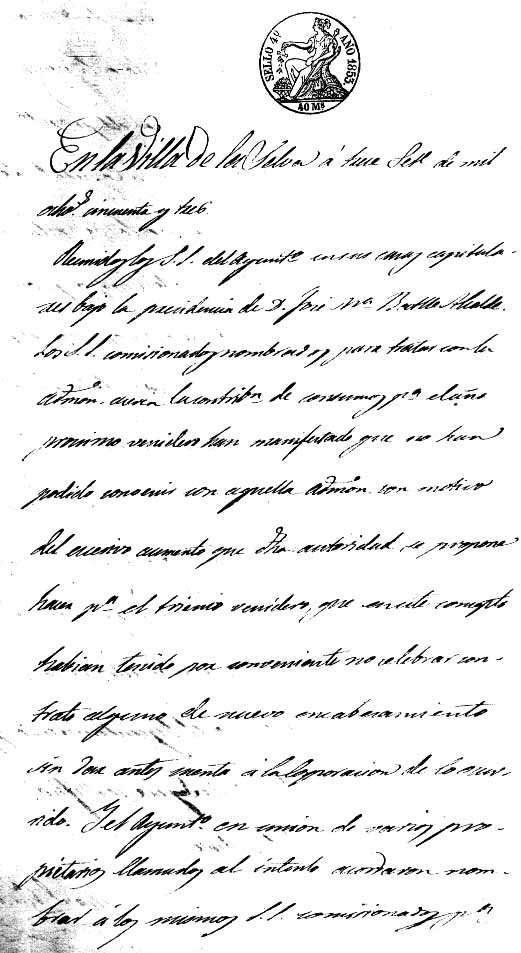 SELLO 4º AÑO 1853.
40 Ms
En la Villa De la Selva á trece Setᵉ de mil
ochoˢ cincuenta y tres.
Reunidos los S.S. del Ayuntº en sus casas capitula-
res bajo la presidencia de D. José Mª Batlle Alcalde.
Los S.S. comisionados nombrados para tratar con la
admón. acerca la contribⁿ de consumos pª el año
procsimo venidero han manifestado que no han
podido convenir con aquella admón. con motivo
del escesivo aumento que dha autoridad se propone
hacer pª el trienio venidero, que en este concepto
habian tenido por conveniente no celebrar con-
trato alguno de nuevo encabesamiento
sin dar antes cuenta á la Coporacion de lo ocur-
rido. Y el Ayuntº en union de varios pro-
pietarios llamados al intento acordaron nom-
brar á los mismos S.S. comisionados pª